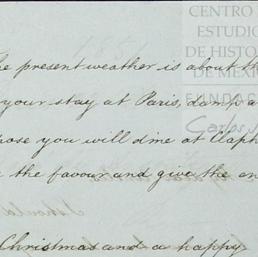 CENTRO
ESTUDIO
DE HISTO
DE MÉXI
FUNDAC
Carlos S
he present weather is about th
your stay at Paris, damp a
pose you will dine at Clapha
the favour and give the en
I should
Christmas and a happy